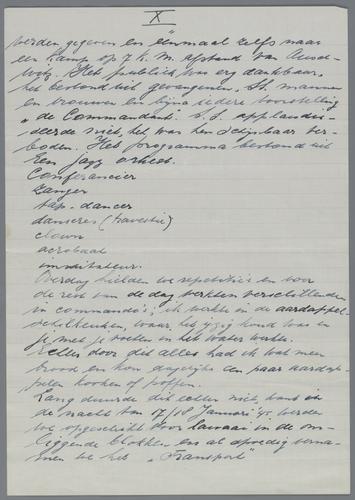 X
werden gegeven en éénmaal zelfs naar
een kamp op 7 k.m. afstand van Ausch-
witz. Het publiek was erg dankbaar,
het bestond uit gevangenen, S.S. mannen
en vrouwen en bijna iedere voorstelling
"de Commandant". S.S. applaudis-
seerde niet, het was hen schijnbaar ver-
boden. Het programma bestond uit
Een jazz orkest.
Conferencier
zanger
tap-dancer
danseres (travestie)
clown
acrobaat
immitateur.
Overdag hielden we repetitie's en voor
de rest van de dag werkten verschillenden
in commando's; ik werkte in de aardappel-
schilkeuken, waar het ijzig koud was en
je met je voeten in het water werkte.
Echter door dit alles had ik wat meer
brood en kon dagelijks een paar aardap-
pelen kooken of poffen.
Lang duurde dit echter niet, want in
de nacht van 17/18 Januari '45 werden
we opgeschrikt door lawaai in de om-
liggende blokken en al spoedig verna-
men we het "Transport"